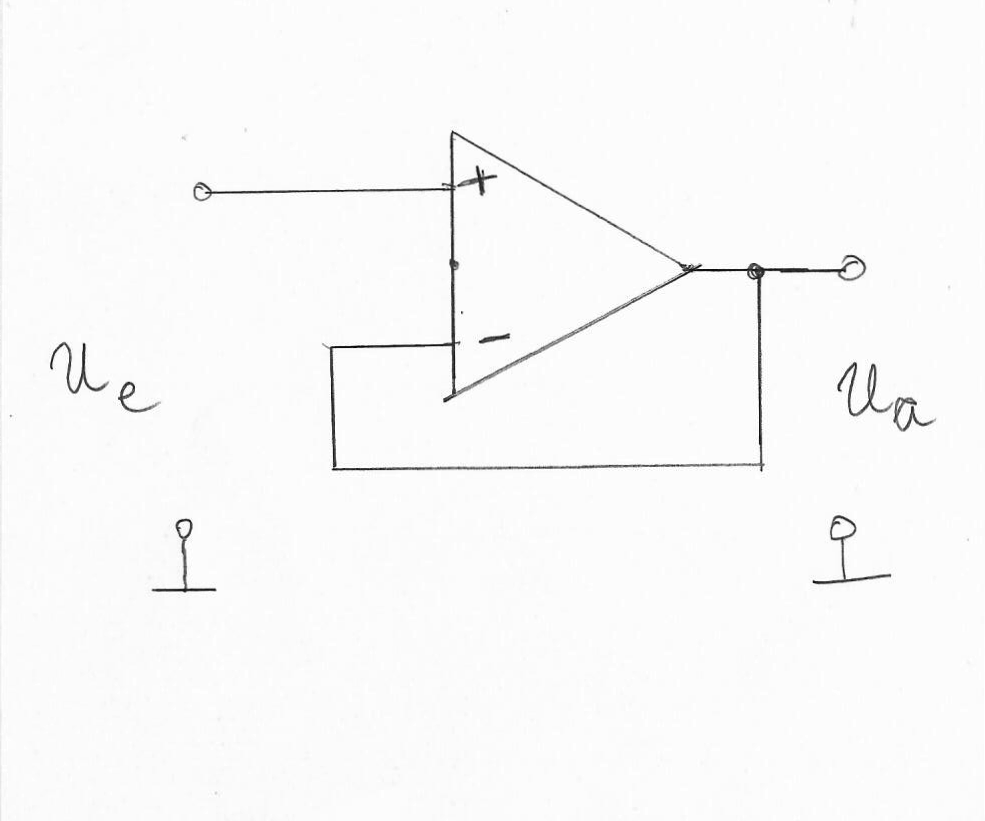 +
-
Ue
Ua